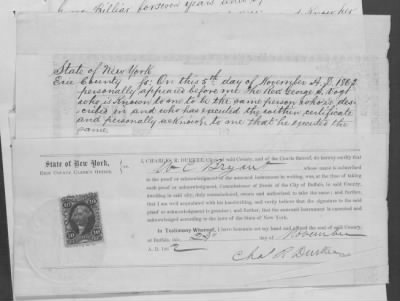 State of New York
Erie County ss. On this 5th day of November A.D. 1862
personally appeared before me the Rev. George S. Vogt
who is known to me to be the same person whose des-
cribed in and who has executed the within certificate
and personally known to me that he executed the
same.
State of New York,
ERIE COUNTY CLERK'S OFFICE.
I, CHARLES R. DURKEE, Clerk of said County, and of the Courts thereof, do hereby certify that
Wm C. Bryant whose name is subscribed
to the proof or acknowledgment of the annexed instrument in writing, was, at the time of taking
such proof or acknowledgment, Commissioner of Deeds of the City of Buffalo, in said County,
dwelling in said city, duly commissioned, sworn and authorized to take the same; and further,
that I am well acquainted with his handwriting, and verily believe that the signature to the said
proof or acknowledgment is genuine; and further, that the annexed instrument is executed and
acknowledged according to the laws of the State of New York.
In Testimony Whereof, I have hereunto set my hand and affixed the seal of said County,
at Buffalo, this day of November
A.D. 186 2
Chas R. Durkee